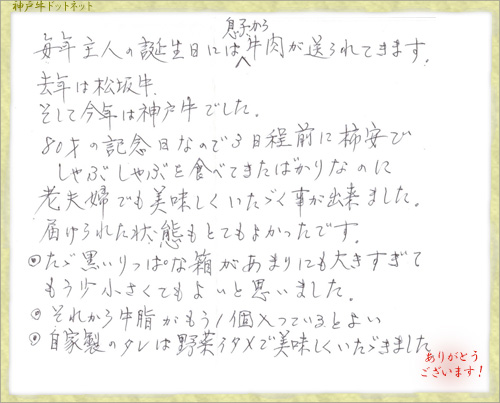 神戸牛ドットネット
息子から
毎年主人の誕生日には牛肉が送られてきます。
去年は松坂牛、
そして今年は神戸牛でした。
80才の記念日なので3日程前に柿安で
しゃぶしゃぶを食べてきたばかりなのに
老夫婦でも美味しくいただく事が出来ました。
届けられた状態もとてもよかったです。
◎ただ黒いりっぱな箱があまりにも大きすぎて
もう少小さくてもよいと思いました。
◎それから牛脂がもう1個入っているとよい
◎自家製のタレは野菜イタメで美味しくいただきました
ありがとう
ございます!